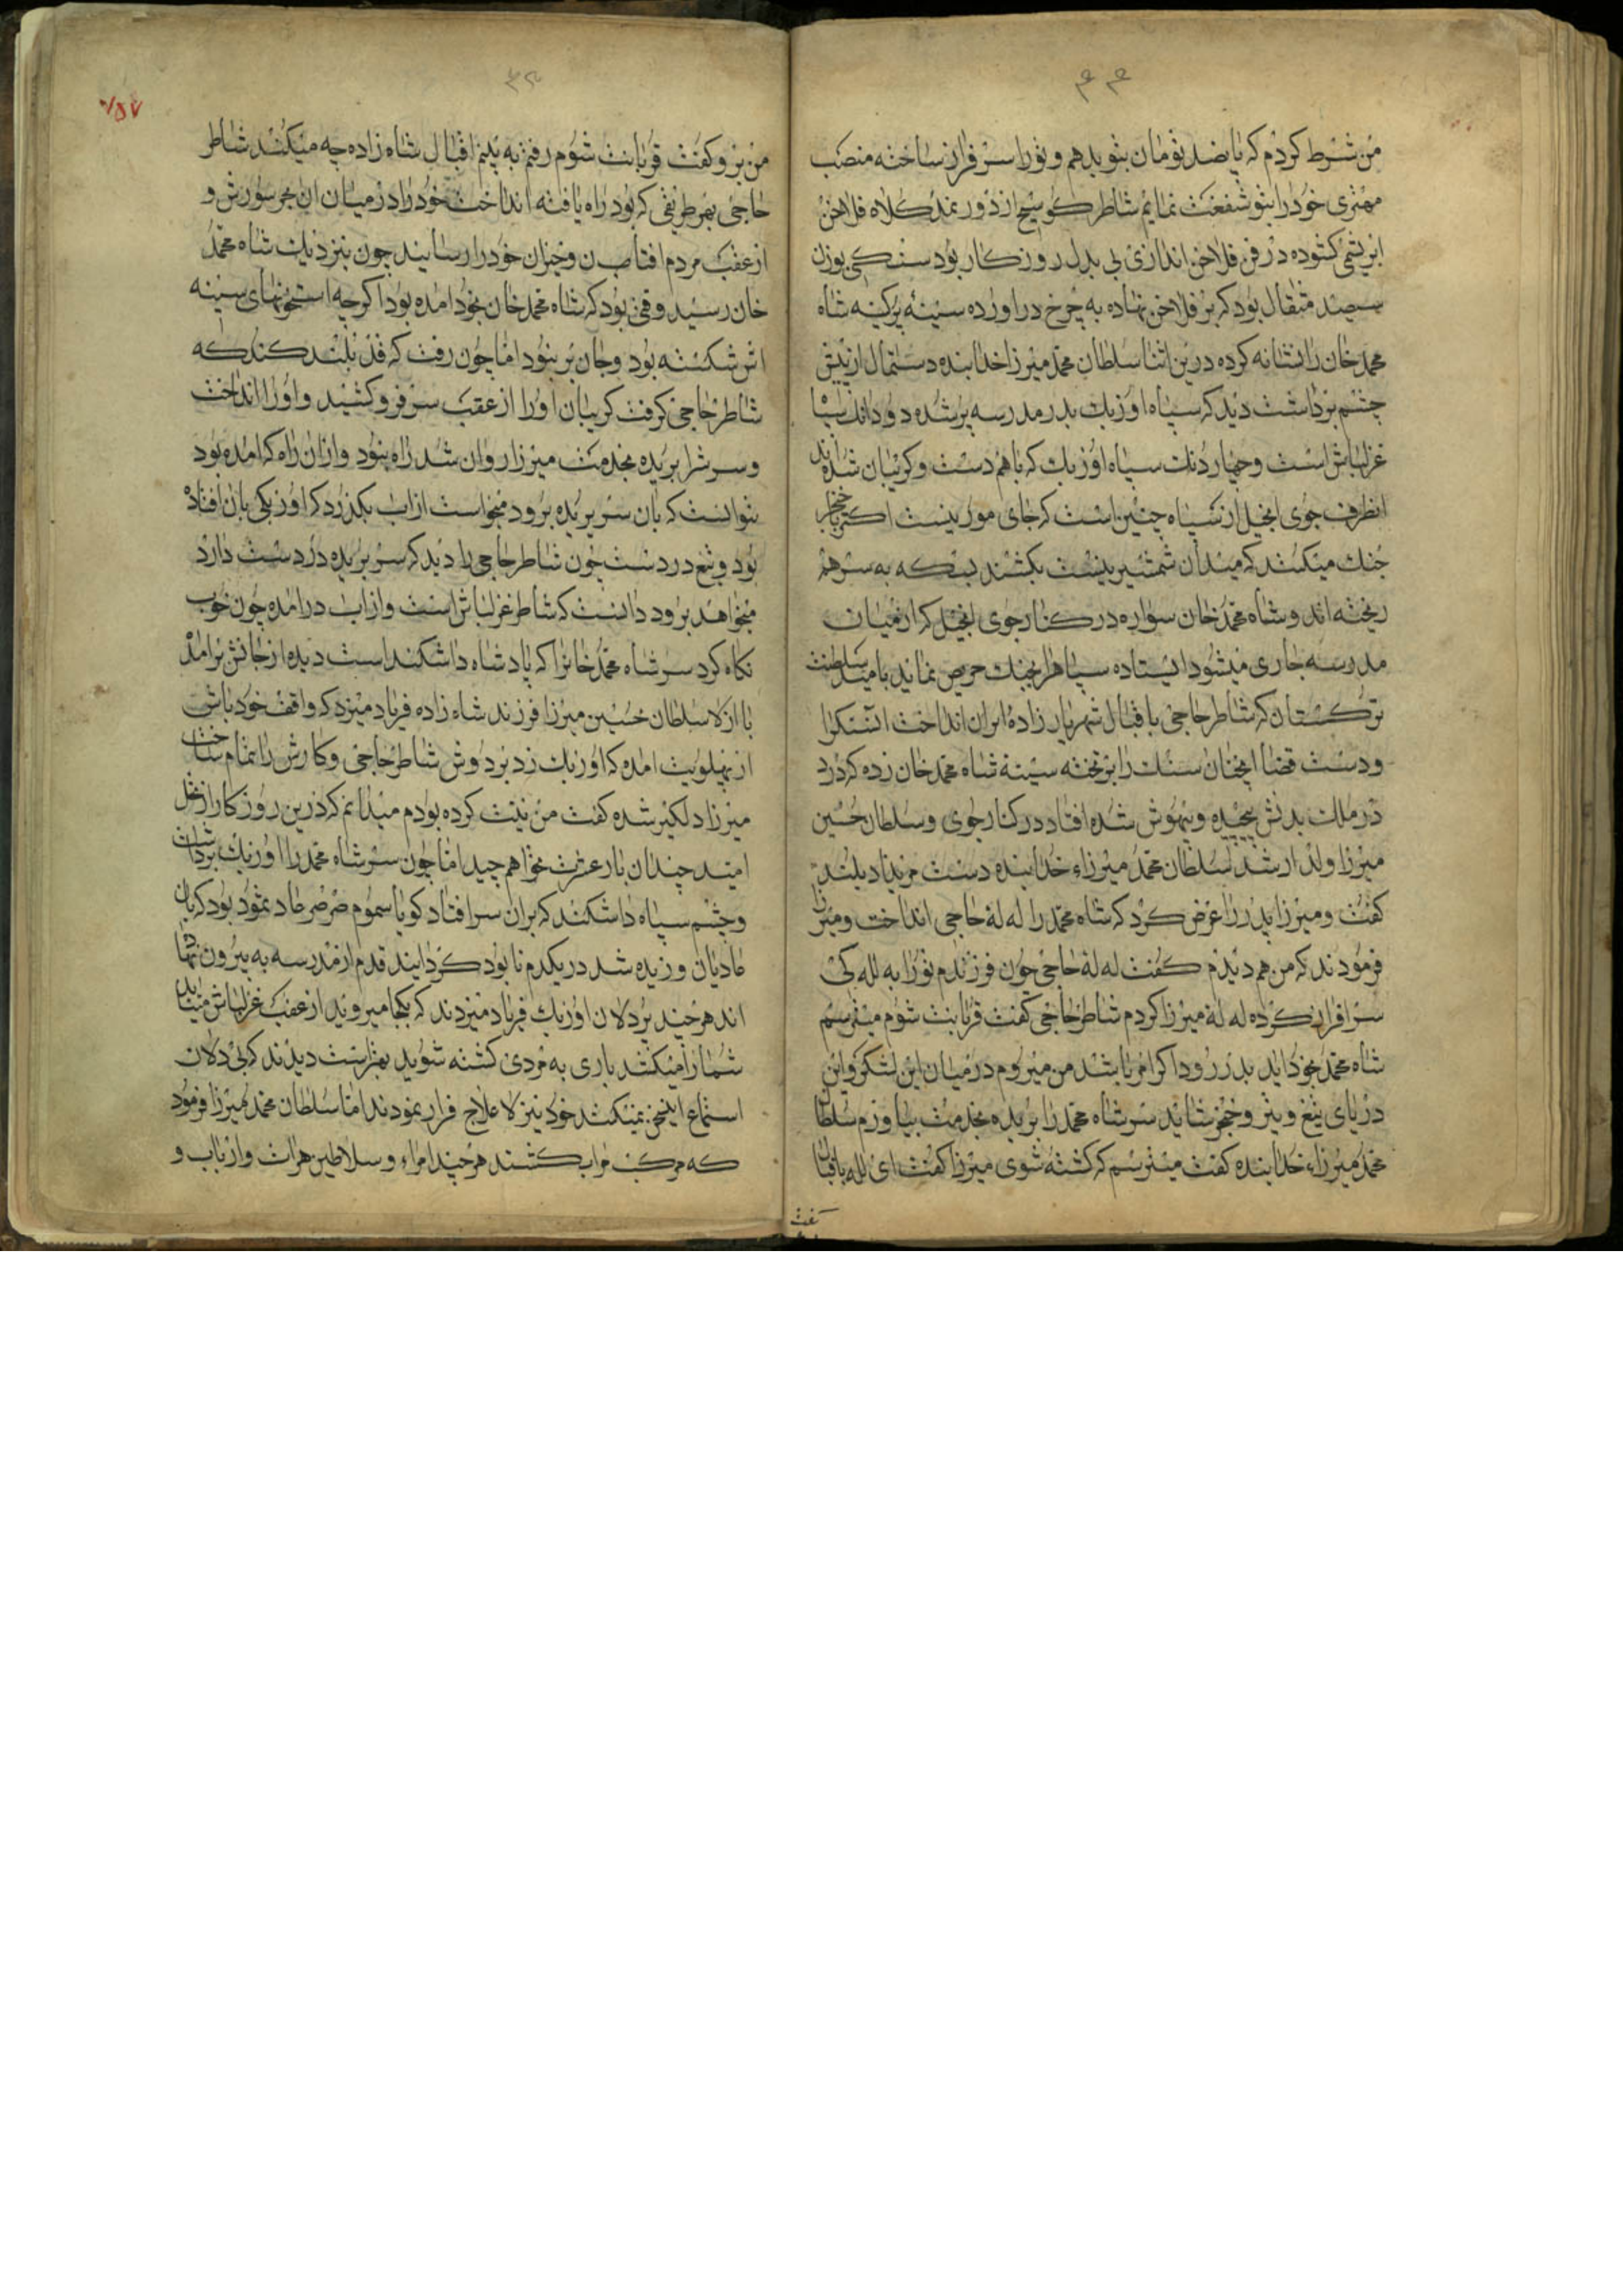 ۴۴
من شرط کردم که پانصد تومان بتو بدهم و تو را سرفراز ساخته منصب
مهتری خود را بتو شفقت نمایم شاطر کوسج از دور نمد کلاه فلاخن
ابریشمی کشوده در فن فلاخن اندازی بی بدل روزکار بود سنکی بوزن
سیصد مثقال بود که بر فلاخن نهاده به چرخ دراورده سینهٔ پرکینه شاه
محمد خان را نشانه کرده درین اثنا سلطان محمد میرزا خدابنده دستمال از پیش
چشم برداشت دید که سپاه اوزبک بدر مدرسه پر شده دو دانک سپاه
غزلباش است و چهار دنک سپاه اوزبک که باهم دست و کریبان شده اند
انطرف جوی انجیل از سپاه چنین است که جای مور نیست اکثر با خنجر
جنک میکنند که میدان شمشیر نیست بکشند بسکه به سر هم
ریخته اند و شاه محمد خان سواره در کنار جوی انجیل که از میان
مدرسه جاری میشود ایستاده سپاه را بجنک حریص نماید بامید سلطنت
ترکستان که شاطر حاجی باقبال شهریار زادهٔ ایران انداخت ان سنک را
و دست قضا انچنان سنک را بر تخته سینهٔ شاه محمد خان زده که درد
در ملک بدنش پیچیده و بیهوش شده افتاد در کنار جوی و سلطان حسین
میرزا ولد ارشد سلطان محمد میرزاء خدابنده دست مریزاد بلند
کفت و میرزا پدر را عرض کرد که شاه محمد را له لهٔ حاجی انداخت و میرزا
فرمودند که من هم دیدم کفت له لهٔ حاجی چون فرزندم تو را به لله کی
سرافراز کرده له لهٔ میرزا کردم شاطر حاجی کفت قربانت شوم میترسم
شاه محمد بخود اید بدر رود اکر امر باشد من میروم در میان این لشکر و این
دریای تیغ و تیر و خنجر شاید سر شاه محمد را بریده بخدمت بیاورم سلطان
محمد میرزاء خدابنده کفت میترسم که کشته شوی میرزا کفت ای لله باقبال
کفت
من برو کفت قربانت شوم رفتم به بینم اقبال شاه زاده چه میکند شاطر
حاجی بهر طریقی که بود راه یافته انداخت خود را در میان ان بحر سورش و
از عقب مردم افتان و خیزان خود را رسانید چون بنزدیک شاه محمد
خان رسید وقتی بود که شاه محمد خان بخود امده بود اکرچه استخوانهای سینه
اش شکسته بود و جان بر نبود اما چون رفت که قد بلند کند که
شاطر حاجی کرفت کریبان او را از عقب سر فرو کشید و او را انداخت
و سرش را بریده بخدمت میرزا روان شد راه نبود و از ان راه که امده بود
نتوانست که بان سر بریده برود میخواست از اب بکذرد که اوزبکی بان افتاده
بود و تیغ در دست چون شاطر حاجی را دید که سر بریده در دست دارد
میخواهد برود دانست که شاطر غزلباش است و از اب درامده چون خوب
نکاه کرد سر شاه محمد خانرا که پادشاه داشکند است دیده از جانش برامد
با از بالا سلطان حسین میرزا فرزند شاه زاده فریاد میزد که واقف خود باش
از پهلویت امده که اوزبک زد بر دوش شاطر حاجی و کارش را تمام ساخت
میرزا دلکیر شده کفت من نیت کرده بودم میدانم که درین روزکار از نخل
امید چندان بار عشرت نخواهم چید اما چون سر شاه محمد را اوزبک برداشت
و چشم سپاه داشکند که بران سر افتاد کویا سموم صرصر عاد نمود بود که بان
عادیان وزیده شد در یکدم نابود کردانید قدم از مدرسه به بیرون نهاده
اند هر چند پردلان اوزبک فریاد میزدند که بکجا میروید از عقب غزلباش میاید
شما را میکشد باری به مردی کشته شوید بهتر است دیدند که بی دلان
استماع این سخن نمیکنند خود نیز لاعلاج فرار نمودند اما سلطان محمد میرزا فرمود
که مرکب مرا بکشند هر چند امراء و سلاطین هرات و ارباب و